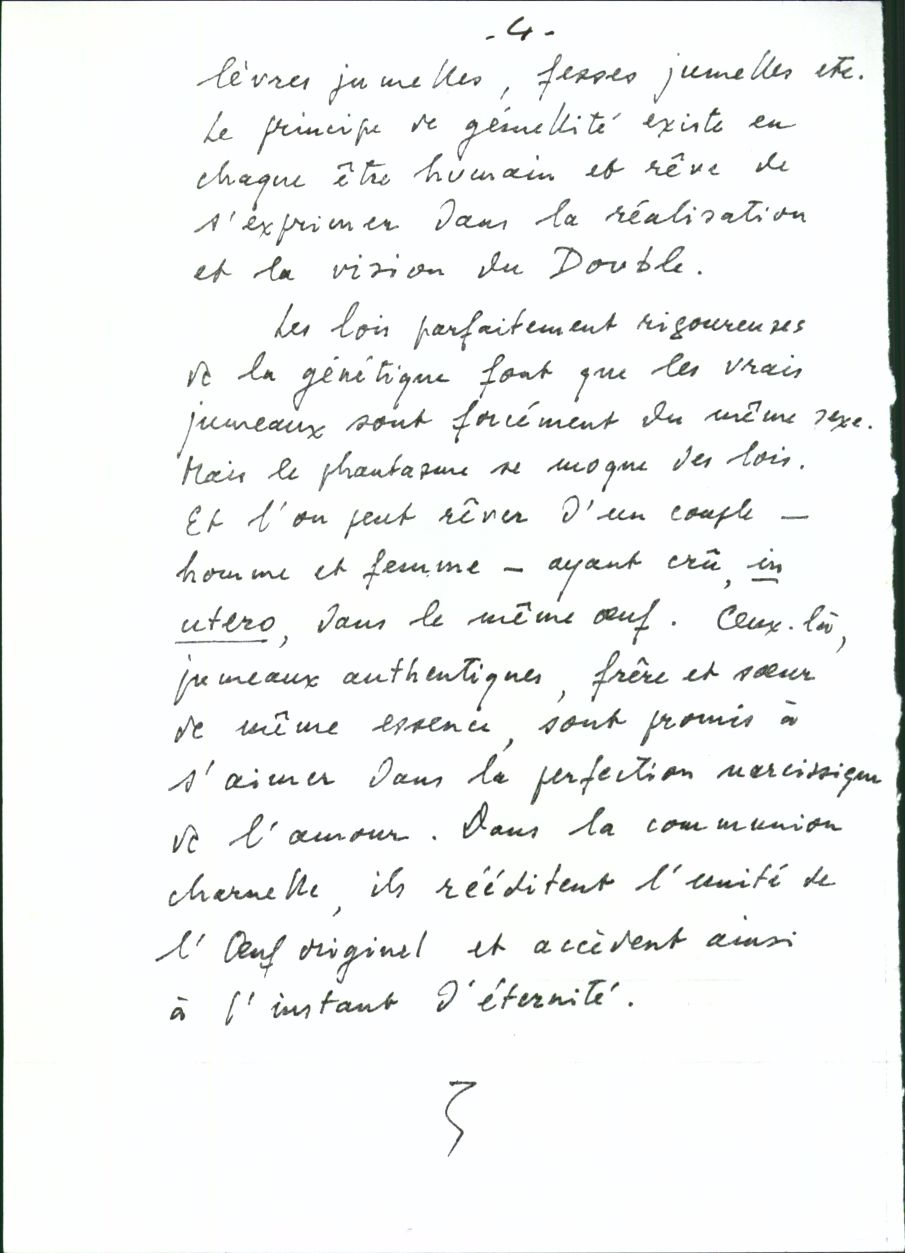 - 4 -
lèvres jumelles, fesses jumelles etc.
Le principe de gémellité existe en
chaque être humain et rêve de
s'exprimer dans la réalisation
et la vision du Double.
Les lois parfaitement rigoureuses
de la génétique font que les vrais
jumeaux sont forcément du même sexe.
Mais le phantasme se moque des lois.
Et l'on peut rêver d'un couple —
homme et femme — ayant crû, in
utero, dans le même œuf. Ceux-là,
jumeaux authentiques, frère et sœur
de même essence, sont promis à
s'aimer dans la perfection narcissique
de l'amour. Dans la communion
charnelle, ils rééditent l'unité de
l'Œuf originel et accèdent ainsi
à l'instant d'éternité.